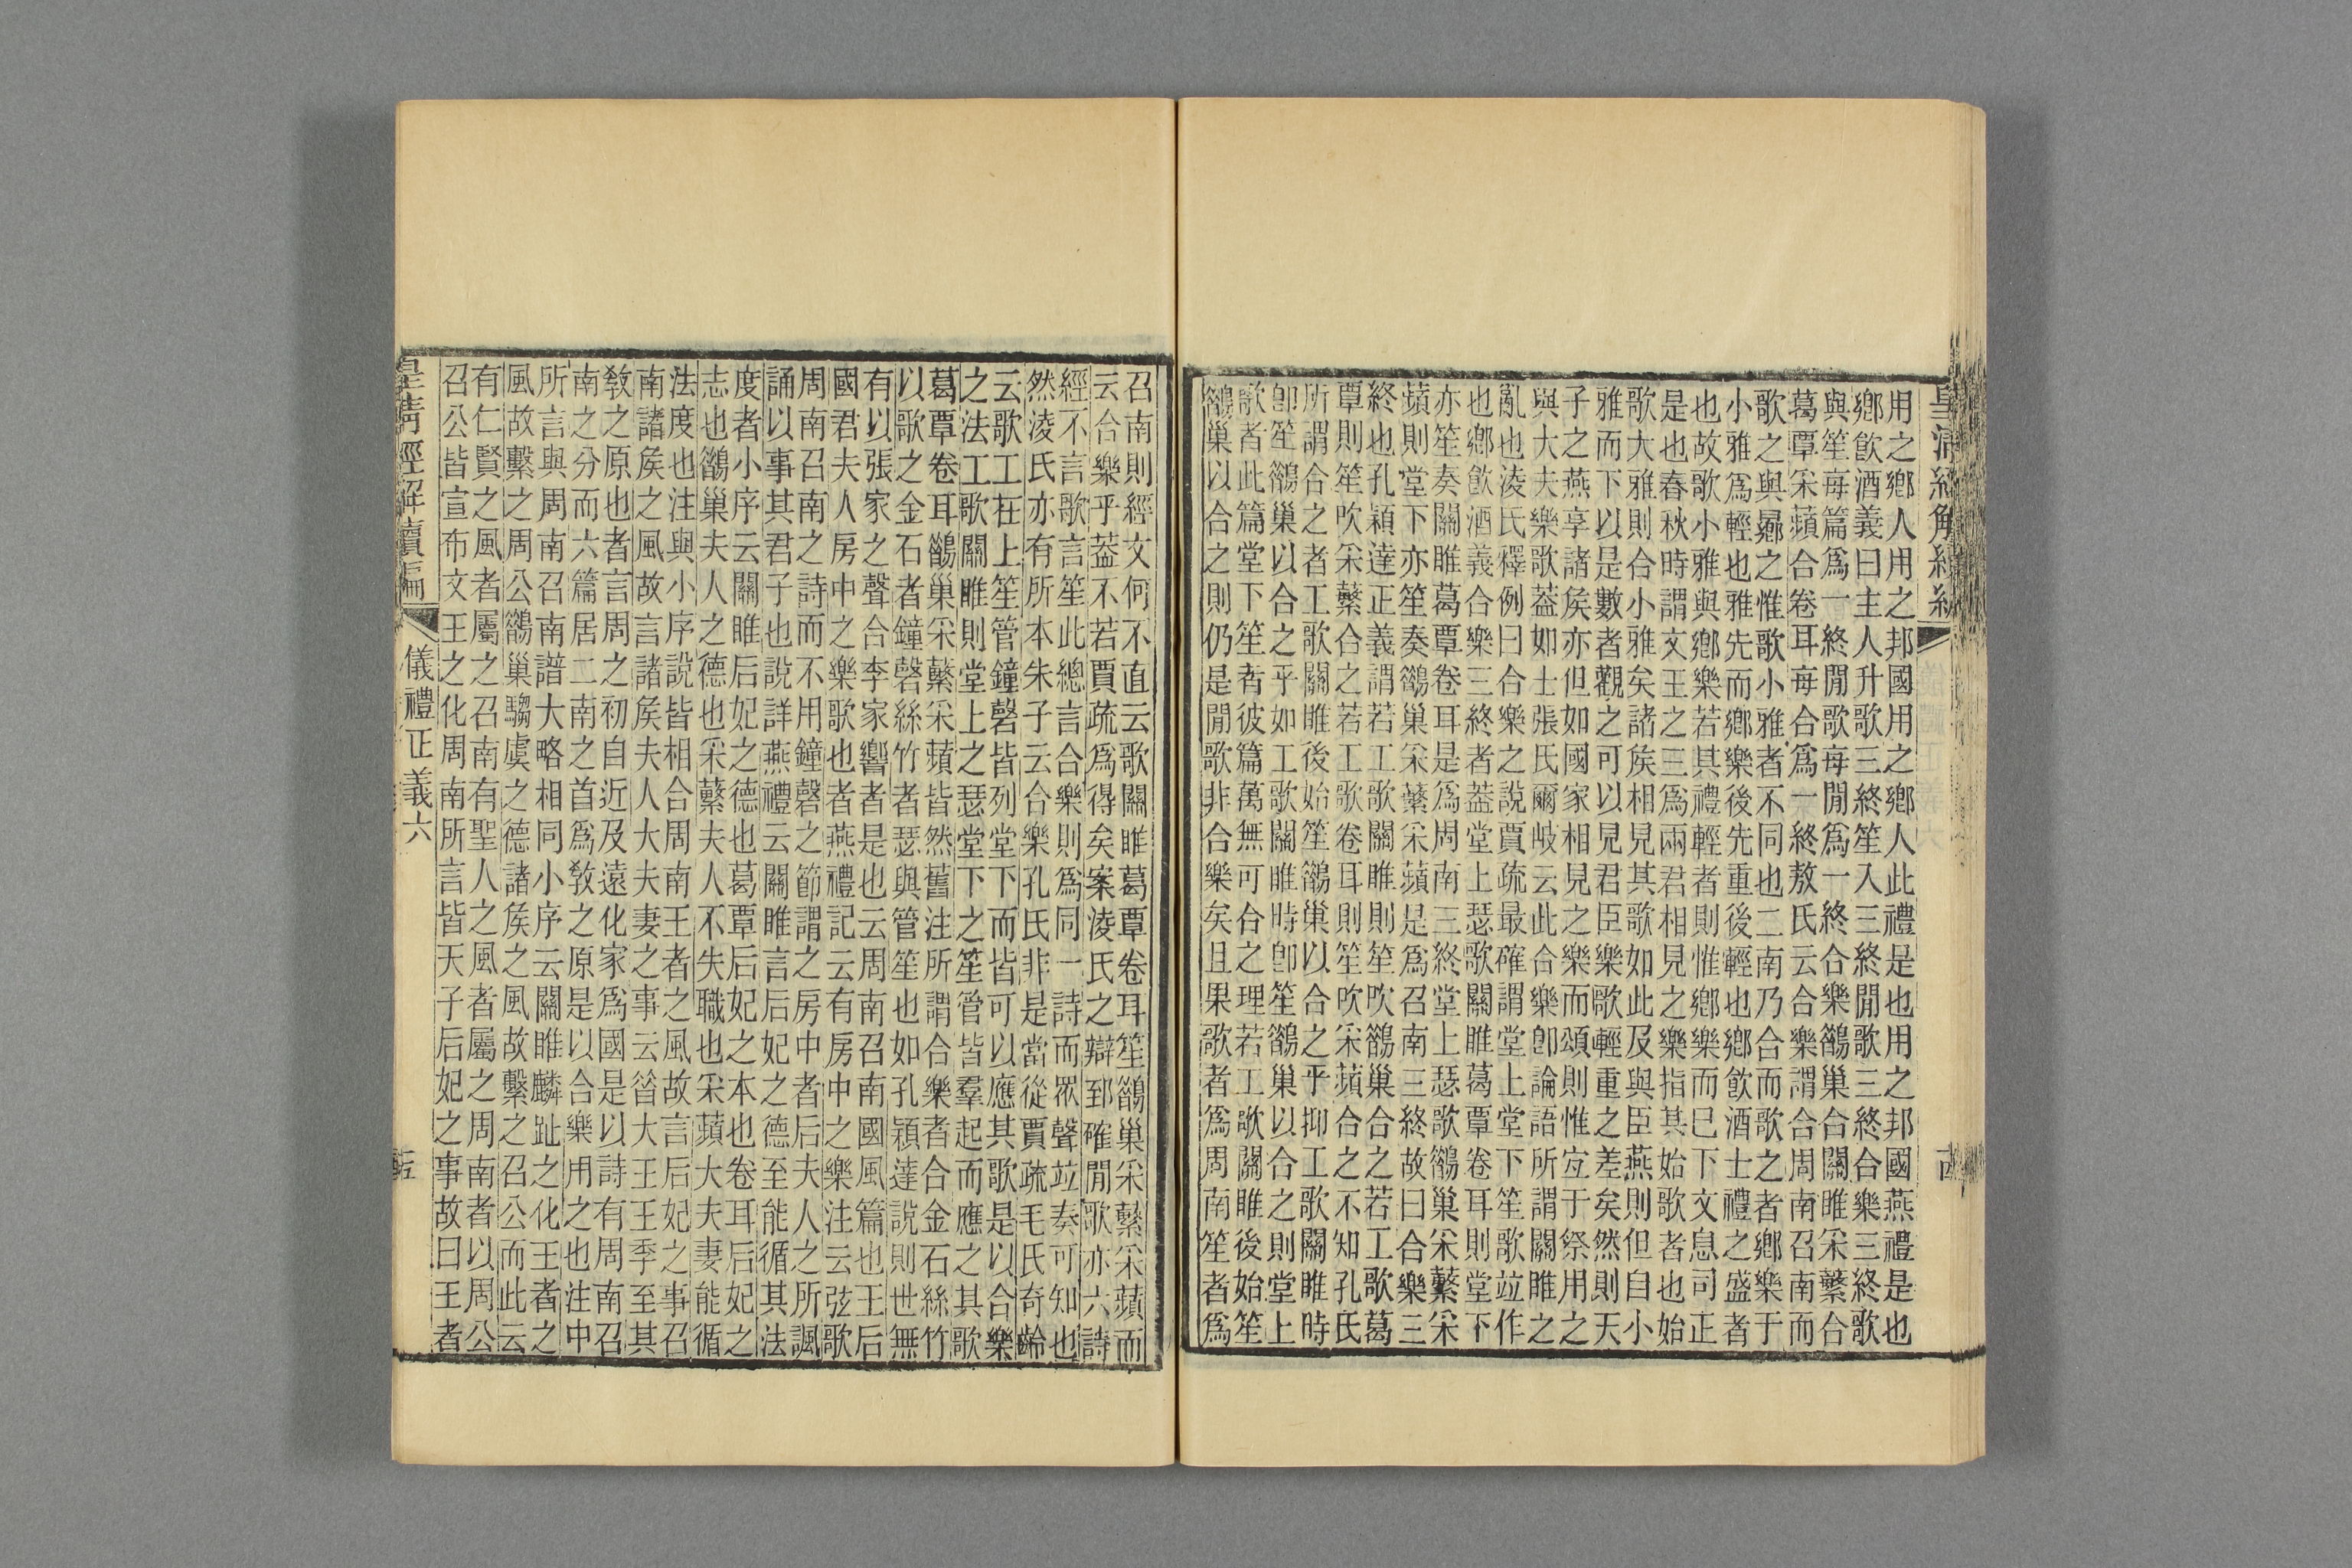 用之鄉人用之邦國用之鄉人此禮是也用之邦國燕禮是也
鄉飲酒義曰主人升歌三終笙入三終閒歌三終合樂三終歌
與笙每篇爲一終閒歌每閒爲一終合樂鵲巢合關雎采蘩合
葛覃采蘋合卷耳每合爲一終敖氏云合樂謂合周南召南而
歌之與曏之惟歌小雅者不同也二南乃合而歌之者鄉樂于
小雅爲輕也雅先而鄉樂後先重後輕也鄉飲酒士禮之盛者
也故歌小雅與鄉樂若其禮輕者則惟鄉樂而巳下文息司正
是也春秋時謂文王之三爲兩君相見之樂指其始歌者也始
歌大雅則合小雅矣諸矦相見其歌如此及與臣燕則但自小
雅而下以是數者觀之可以見君臣樂歌輕重之差矣然則天
子之燕享諸矦亦但如國家相見之樂而頌則惟宐于祭用之
與大夫樂歌葢如士張氏爾岐云此合樂卽論語所謂關雎之
亂也淩氏釋例曰合樂之說賈疏最確謂堂上堂下笙歌竝作
也鄉飲酒義合樂三終者葢堂上瑟歌關雎葛覃卷耳則堂下
亦笙奏關雎葛覃卷耳是爲周南三終堂上瑟歌鵲巢采蘩采
蘋則堂下亦笙奏鵲巢采蘩采蘋是爲召南三終故曰合樂三
終也孔穎達正義謂若工歌關雎則笙吹鵲巢合之若工歌葛
覃則笙吹采蘩合之若工歌卷耳則笙吹采蘋合之不知孔氏
所謂合之者工歌關雎後始笙鵲巢以合之乎抑工歌關雎時
卽笙鵲巢以合之乎如工歌關雎時卽笙鵲巢以合之則堂上
歌者此篇堂下笙者彼篇萬無可合之理若工歌關雎後始笙
鵲巢以合之則仍是閒歌非合樂矣且果歌者爲周南笙者爲
召南則經文何不直云歌關雎葛覃卷耳笙鵲巢采蘩采蘋而
云合樂乎葢不若賈疏爲得矣案淩氏之辯郅確閒歌亦六詩
經不言歌言笙此總言合樂則爲同一詩而眾聲竝奏可知也
然淩氏亦有所本朱子云合樂孔氏非是當從賈疏毛氏奇齡
云歌工在上笙管鐘磬皆列堂下而皆可以應其歌是以合樂
之法工歌關雎則堂上之瑟堂下之笙管皆羣起而應之其歌
葛覃卷耳鵲巢采蘩采蘋皆然舊注所謂合樂者合金石絲竹
以歌之金石者鐘磬絲竹者瑟與管笙也如孔穎達說則世無
有以張家之聲合李家響者是也云周南召南國風篇也王后
國君夫人房中之樂歌也者燕禮記云有房中之樂注云弦歌
周南召南之詩而不用鐘磬之節謂之房中者后夫人之所諷
誦以事其君子也說詳燕禮云關雎言后妃之德至能循其法
度者小序云關雎后妃之德也葛覃后妃之本也卷耳后妃之
志也鵲巢夫人之德也采蘩夫人不失職也采蘋大夫妻能循
法度也注與小序說皆相合周南王者之風故言后妃之事召
南諸矦之風故言諸矦夫人大夫妻之事云昔大王王季至其
敎之原也者言周之初自近及遠化家爲國是以詩有周南召
南之分而六篇居二南之首爲敎之原是以合樂用之也注中
所言與周南召南譜大略相同小序云關雎麟趾之化王者之
風故繫之周公鵲巢騶虞之德諸矦之風故繫之召公而此云
有仁賢之風者屬之召南有聖人之風者屬之周南者以周公
召公皆宣布文王之化周南所言皆天子后妃之事故曰王者
皇清經解續編
儀禮正義六